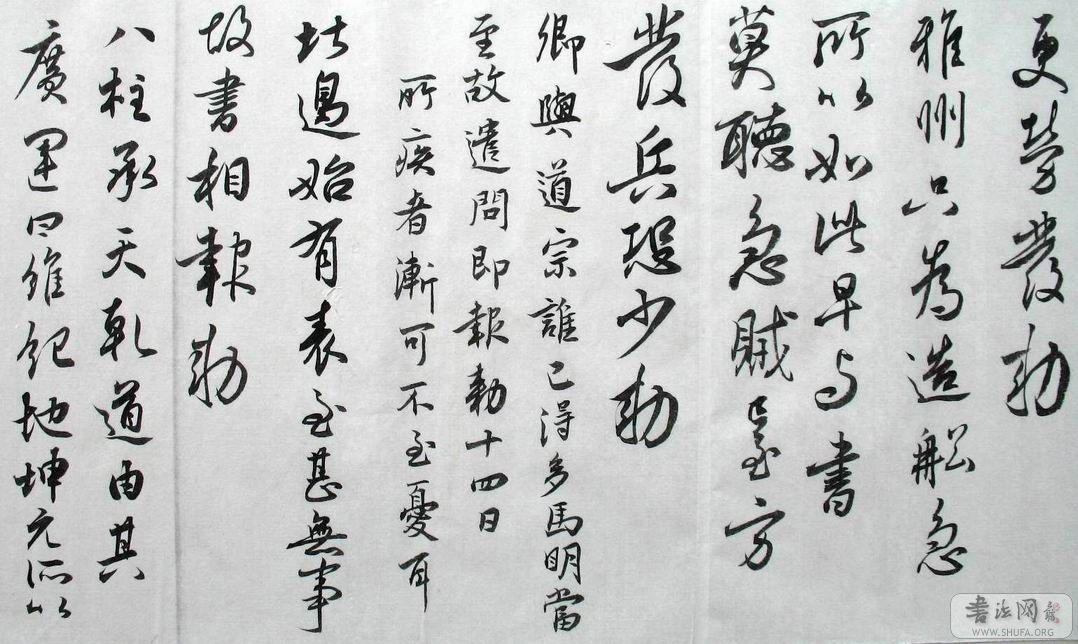 更勞發勅
雅州只為造船急
所以如此早与書
莫聽急賊至方
發兵恐少勅
卿與道宗誰已得多馬明當
至故遣問即報勅十四日
所疾者漸可不至憂耳
比邊始有表至甚無事
故書相報勅
八柱承天乾道由其
廣運四維紀地坤元所以
書法网
WWW.SHUFA.ORG